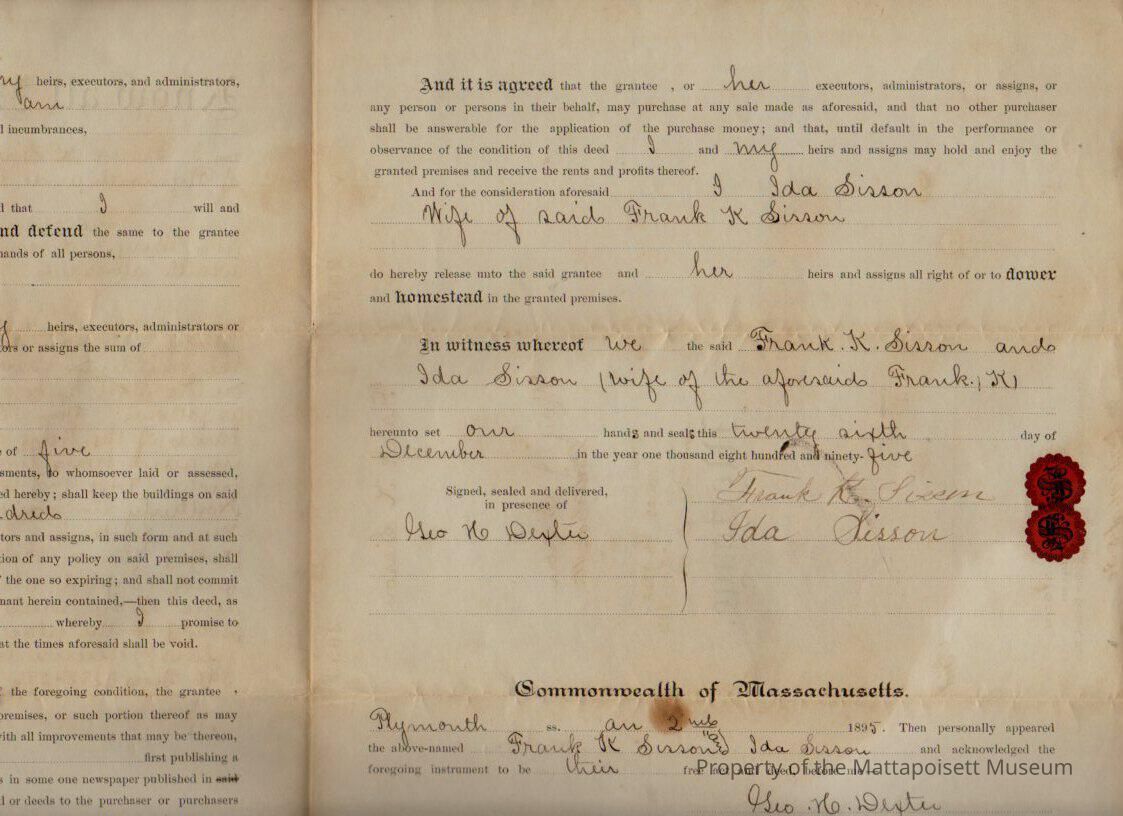 heirs, executors, and administrators,
am
incumbrances,
that I will and
and defend the same to the grantee
of all persons,
heirs, executors, administrators or
or assigns the sum of
of five
to whomsoever laid or assessed,
hereby; shall keep the buildings on said
and assigns, in such form and at such
of any policy on said premises, shall
the one so expiring; and shall not commit
herein contained,—then this deed, as
whereby I promise to
at the times aforesaid shall be void.
the foregoing condition, the grantee
premises, or such portion thereof as may
with all improvements that may be thereon,
first publishing a
in some one newspaper published in said
or deeds to the purchaser or purchasers
And it is agreed that the grantee , or her executors, administrators, or assigns, or
any person or persons in their behalf, may purchase at any sale made as aforesaid, and that no other purchaser
shall be answerable for the application of the purchase money; and that, until default in the performance or
observance of the condition of this deed I and my heirs and assigns may hold and enjoy the
granted premises and receive the rents and profits thereof.
And for the consideration aforesaid I Ida Sisson
Wife of said Frank K Sisson
do hereby release unto the said grantee and her heirs and assigns all right of or to dower
and homestead in the granted premises.
In witness whereof we the said Frank. K. Sisson and
Ida Sisson (wife of the aforesaid Frank. K)
hereunto set our hands and seals this twenty sixth day of
December in the year one thousand eight hundred and ninety-five
Signed, sealed and delivered,
in presence of
Geo H Dexter
Frank K. Sisson
Ida Sisson
Commonwealth of Massachusetts.
Plymouth ss. 1895. Then personally appeared
the above-named Frank K Sisson & Ida Sisson and acknowledged the
foregoing instrument to be their free act and deed, before me—
Geo. H. Dexter
Property of the Mattapoisett Museum